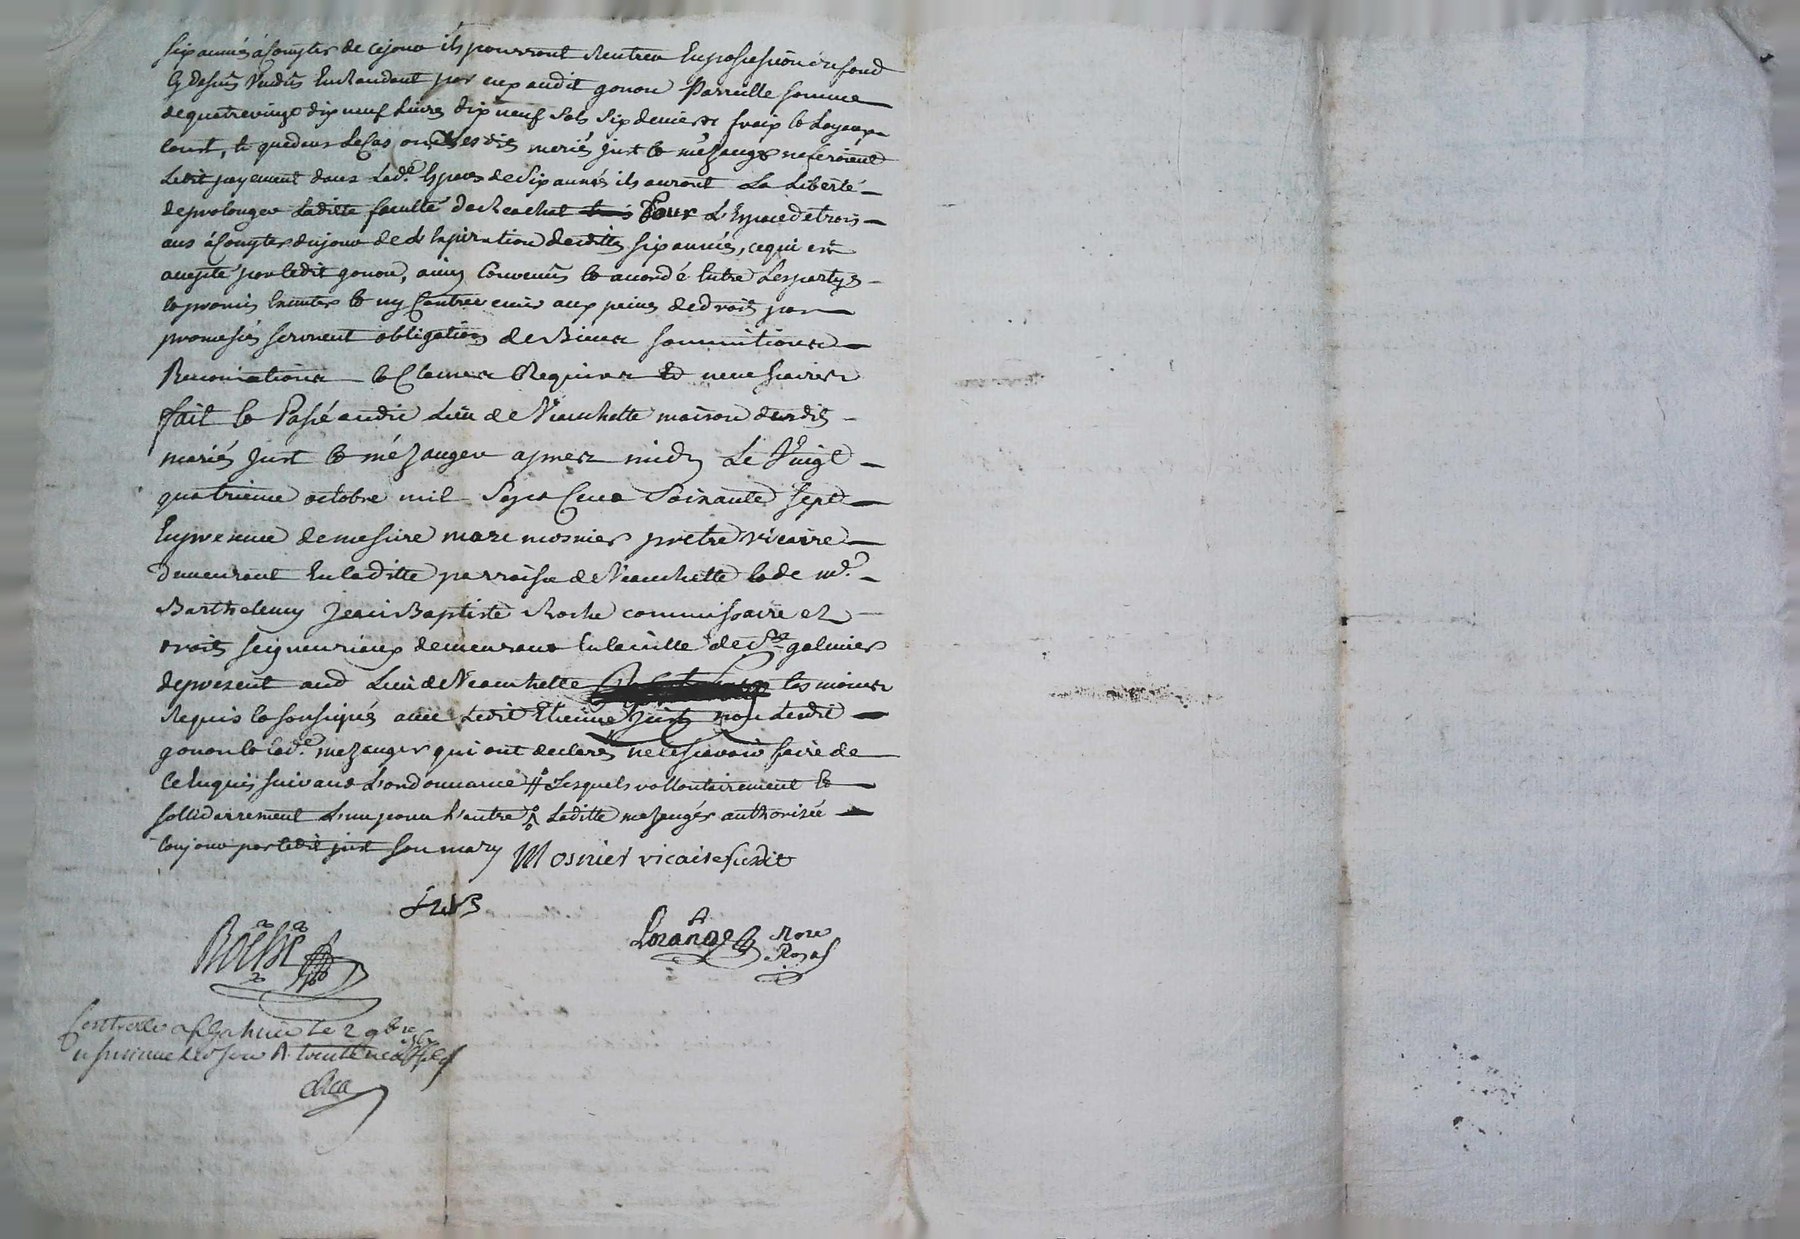 six années à Compter de cejour ils pourront Rentrer En possession du fond
Cy dessus Vendu En Randant par eux audit gonon Parreille somme
de quatrevingt dix neuf Livres dix neuf sols six deniers fraix et Loyaux
Cout, et que dans Le Cas où Lesdits mariés Just et mézanger ne feroient
Ledit payement dans Lad.e Espace de Six années ils auront La Liberté
de prolonger Laditte faculté de Reachat Pour L'Espace de trois
ans à Compter du jour de L'Expiration desdittes six années, ce qui est
accepté par Ledit gonon, ainsy Convenus et accordé Entre Lesparties
et promis Executer et ny Contrevenir aux peines de droit par
promesses serment obligation de Biens soumitions
Renonciations et Clauses Requises et necessaires
fait et Passé audit Lieu de Veauchette maison desdits
mariés Just et mézanger apres midy Le Vingt
quatrieme octobre mil Sept Cent Soixante sept
En presence de messire marc mosnier pretre vicaire
demeurant En laditte parroisse de Veauchette et de m.e
Barthelemy Jean Baptiste Roche commissaire ez
droits seigneuriaux demeurant En la ville de St galmier
de present aud Lieu de Veauchette témoins
Requis et sousignés avec Ledit Etienne Just non Ledit
gonon et Lad.e mezanger qui ont declarés ne le scavoir faire de
Ce Enquis suivant L'ordonnance # Lesquels vollontairement et
sollidairement L'un pour L'autre Laditte mezanger authorisée
toujour par Ledit just son mary Mosnier vicaire susdit
Just
Roche
Lorange Nore
Royal
Controllé a le 2 9bre 1767
trente neuf sols